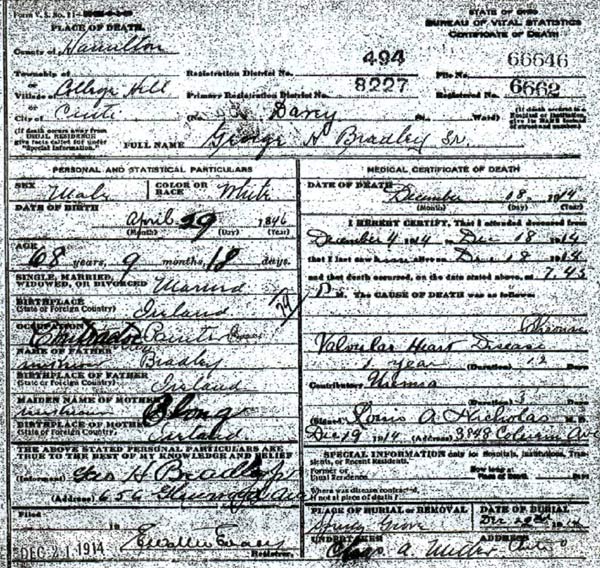 STATE OF OHIO
BUREAU OF VITAL STATISTICS
CERTIFICATE OF DEATH
Form V. S. No. 11
PLACE OF DEATH.
County of Hamilton
Township of
Registration District No. 494
File No. 66646
or
Village of College Hill
Primary Registration District No. 8227
Registered No. 6662
or
City of Cinti
(No. Davey St., Ward)
(If death occurs away from USUAL RESIDENCE give facts called for under "Special Information.")
FULL NAME George H Bradley Sr.
PERSONAL AND STATISTICAL PARTICULARS
SEX Male
COLOR OR RACE White
DATE OF BIRTH
April 29 1846
(Month) (Day) (Year)
AGE
68 years, 9 months, 18 days.
SINGLE, MARRIED, WIDOWED, OR DIVORCED Married
BIRTHPLACE
(State or Foreign Country) Ireland
OCCUPATION
Contractor
NAME OF FATHER
Bradley
BIRTHPLACE OF FATHER
(State or Foreign Country) Ireland
MAIDEN NAME OF MOTHER
Long
BIRTHPLACE OF MOTHER
(State or Foreign Country) Ireland
THE ABOVE STATED PERSONAL PARTICULARS ARE TRUE TO THE BEST OF MY KNOWLEDGE AND BELIEF
(Informant) Geo H Bradley Jr
(Address) 656 Glenwood Ave
Filed
DEC 21 1914
Registrar.
MEDICAL CERTIFICATE OF DEATH
DATE OF DEATH December 18 1914
(Month) (Day) (Year)
I HEREBY CERTIFY, That I attended deceased from
December 4 1914 to Dec 18 1914
that I last saw him alive on Dec 18 1914
and that death occurred, on the date stated above, at 7.45
P. M. The CAUSE OF DEATH was as follows:
Chronic
Valvular Heart Disease
1 year (Duration) 12 Days
Contributory Uremia
(Duration) 3 Days
(Signed) Louis A. Nicholas M. D.
Dec 19 1914 (Address) 3848 Colerain Ave
SPECIAL INFORMATION only for Hospitals, Institutions, Transients, or Recent Residents.
Former or Usual Residence
How long at Place of Death Days
Where was disease contracted, if not at place of death?
PLACE OF BURIAL OR REMOVAL
Spring Grove
DATE OF BURIAL
UNDERTAKER
Chas A. Miller
ADDRESS